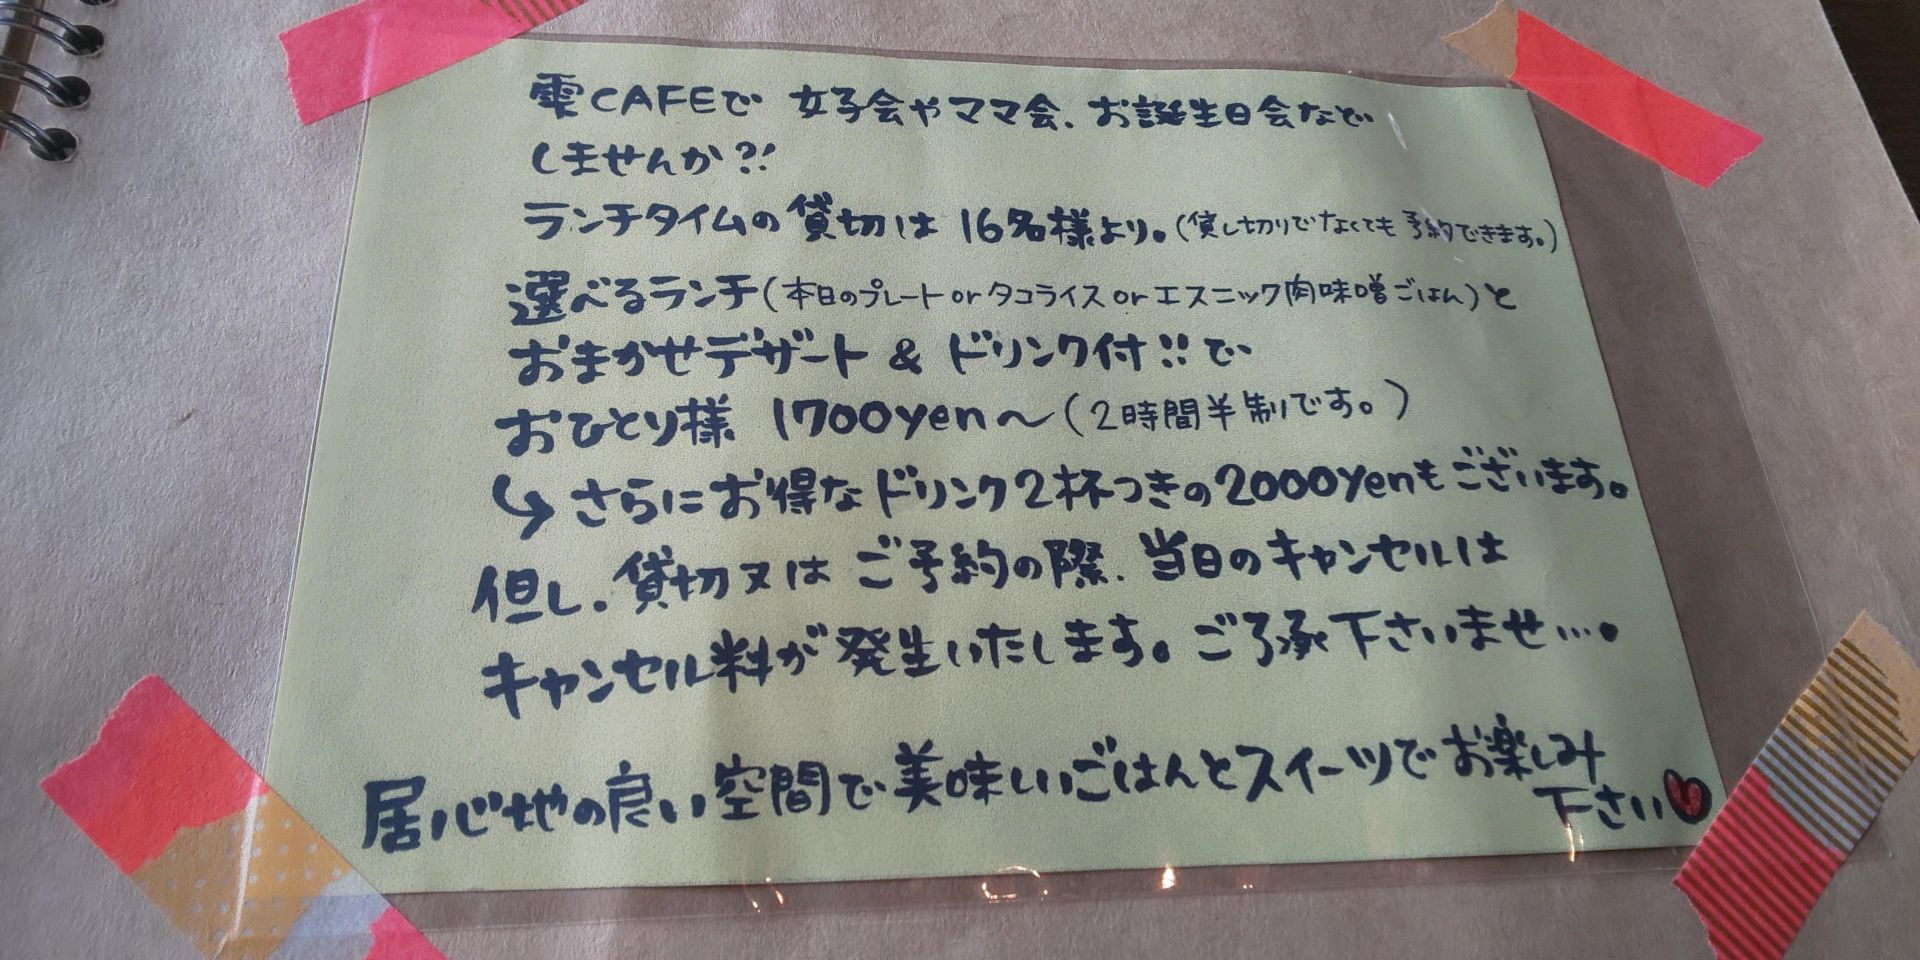 雫CAFEで 女子会やママ会、お誕生日会など
しませんか?!
ランチタイムの貸切は 16名様より。(貸し切りでなくても予約できます。)
選べるランチ(本日のプレート or タコライス or エスニック肉味噌ごはん)と
おまかせデザート & ドリンク付!!で
おひとり様 1700yen〜(2時間半制です。)
↳ さらにお得なドリンク2杯つきの2000yenもございます。
但し、貸切又はご予約の際、当日のキャンセルは
キャンセル料が発生いたします。ご了承下さいませ…。
居心地の良い空間で美味しいごはんとスイーツでお楽しみ
下さい♥